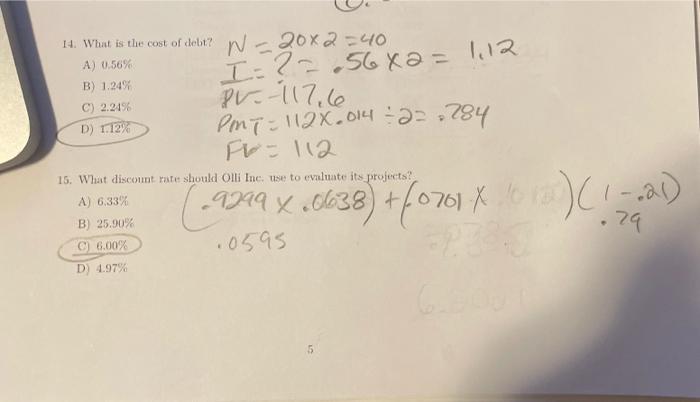 14. What is the cost of debt? N = 20x2=40
A) 0.56% I = ? = .56 x 2 = 1.12
B) 1.24% PV = -117.6
C) 2.24% PmT = 112 x .014 ÷ 2 = .784
D) 1.12% FV = 112
15. What discount rate should Olli Inc. use to evaluate its projects?
A) 6.33% (.9299 x .0638) + (.0701 x )(1-.21)
B) 25.90% .79
C) 6.00% .0595
D) 4.97%
5